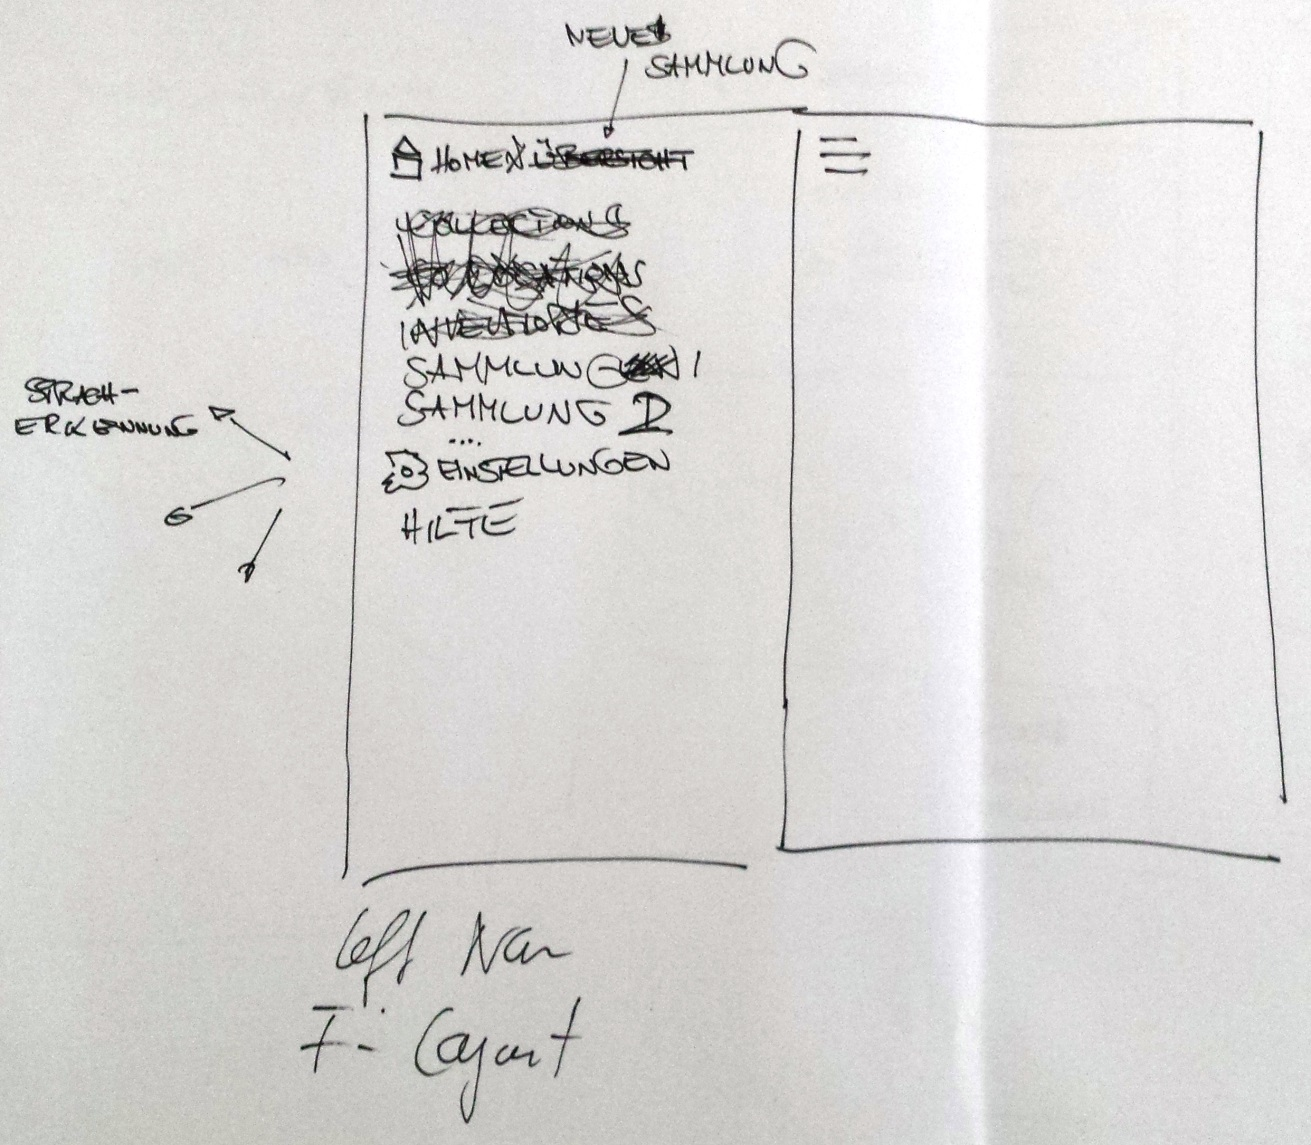 NEUE
SAMMLUNG
HOME ÜBERSICHT
COLLECTIONS
INVENTORIES
SAMMLUNG 1
SAMMLUNG II
....
EINSTELLUNGEN
HILFE
SPRACH-
ERKENNUNG
Left Nav
F- Layout